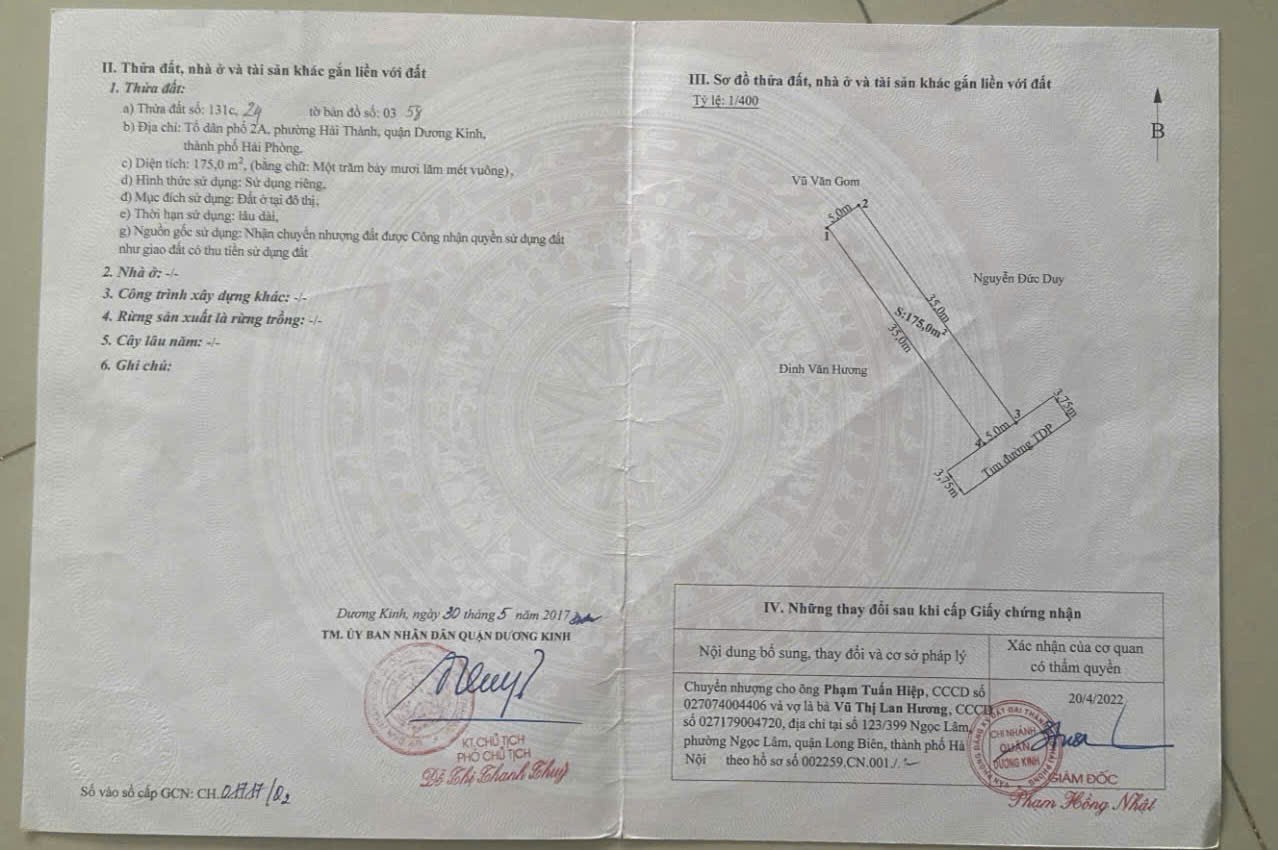 II. Thửa đất, nhà ở và tài sản khác gắn liền với đất
1. Thửa đất:
a) Thửa đất số: 131c, 24 tờ bản đồ số: 03 58
b) Địa chỉ: Tổ dân phố 2A, phường Hải Thành, quận Dương Kinh,
thành phố Hải Phòng.
c) Diện tích: 175,0 m², (bằng chữ: Một trăm bảy mươi lăm mét vuông),
d) Hình thức sử dụng: Sử dụng riêng,
đ) Mục đích sử dụng: Đất ở tại đô thị,
e) Thời hạn sử dụng: lâu dài,
g) Nguồn gốc sử dụng: Nhận chuyển nhượng đất được Công nhận quyền sử dụng đất
như giao đất có thu tiền sử dụng đất
2. Nhà ở: -/-
3. Công trình xây dựng khác: -/-
4. Rừng sản xuất là rừng trồng: -/-
5. Cây lâu năm: -/-
6. Ghi chú:
Dương Kinh, ngày 30 tháng 5 năm 2017
TM. ỦY BAN NHÂN DÂN QUẬN DƯƠNG KINH
KT.CHỦ TỊCH
PHÓ CHỦ TỊCH
Đỗ Thị Thanh Thuỷ
Số vào sổ cấp GCN: CH.01717/02
III. Sơ đồ thửa đất, nhà ở và tài sản khác gắn liền với đất
Tỷ lệ: 1/400
B
Vũ Văn Gom
5.0m 2
1
Nguyễn Đức Duy
35,0m
S:175,0m²
35,0m
Đinh Văn Hương
3,75m
3
5.0m
4
Tim đường TDP
3,75m
IV. Những thay đổi sau khi cấp Giấy chứng nhận
Nội dung bổ sung, thay đổi và cơ sở pháp lý
Xác nhận của cơ quan
có thẩm quyền
Chuyển nhượng cho ông Phạm Tuấn Hiệp, CCCD số
027074004406 và vợ là bà Vũ Thị Lan Hương, CCCD
số 027179004720, địa chỉ tại số 123/399 Ngọc Lâm,
phường Ngọc Lâm, quận Long Biên, thành phố Hà
Nội theo hồ sơ số 002259.CN.001./.
20/4/2022
CHI NHÁNH
QUẬN
DƯƠNG KINH
GIÁM ĐỐC
Phạm Hồng Nhật